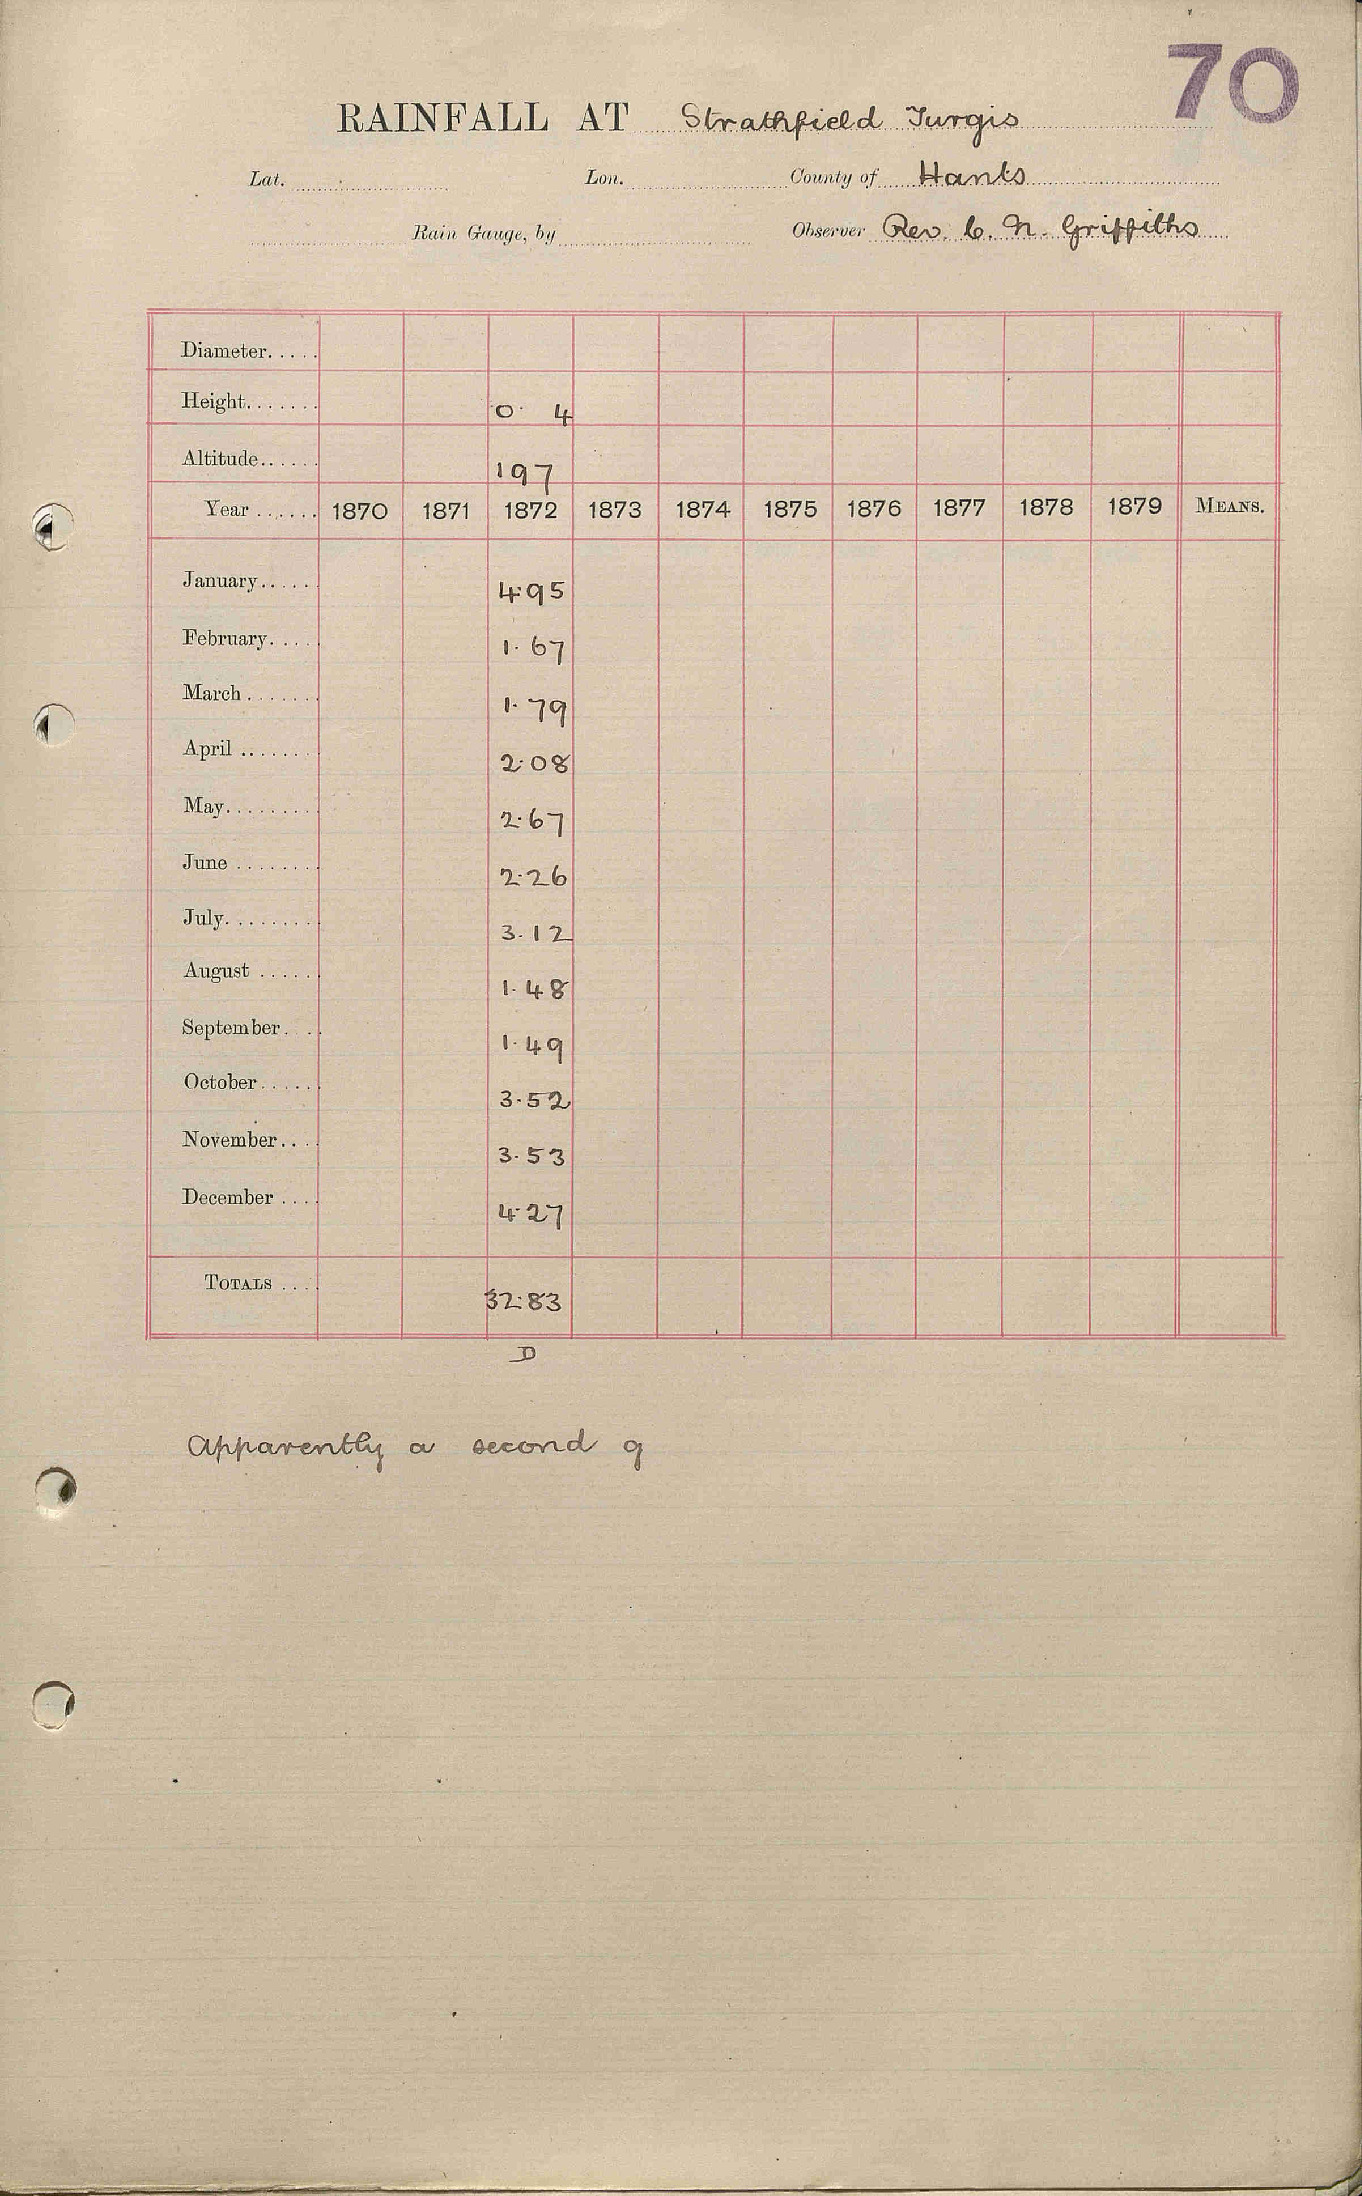 70
RAINFALL AT Strathfield Turgis
Lat. Lon. County of Hants
Rain Gauge, by Observer Rev. C. N. Griffiths
Diameter.....
Height....... 0. 4
Altitude...... 197
Year ...... 1870 1871 1872 1873 1874 1875 1876 1877 1878 1879 MEANS.
January..... 4.95
February..... 1.67
March ....... 1.79
April ....... 2.08
May......... 2.67
June ........ 2.26
July......... 3.12
August ...... 1.48
September... 1.49
October...... 3.52
November.... 3.53
December .... 4.27
TOTALS .... 32.83
D
Apparently a second g